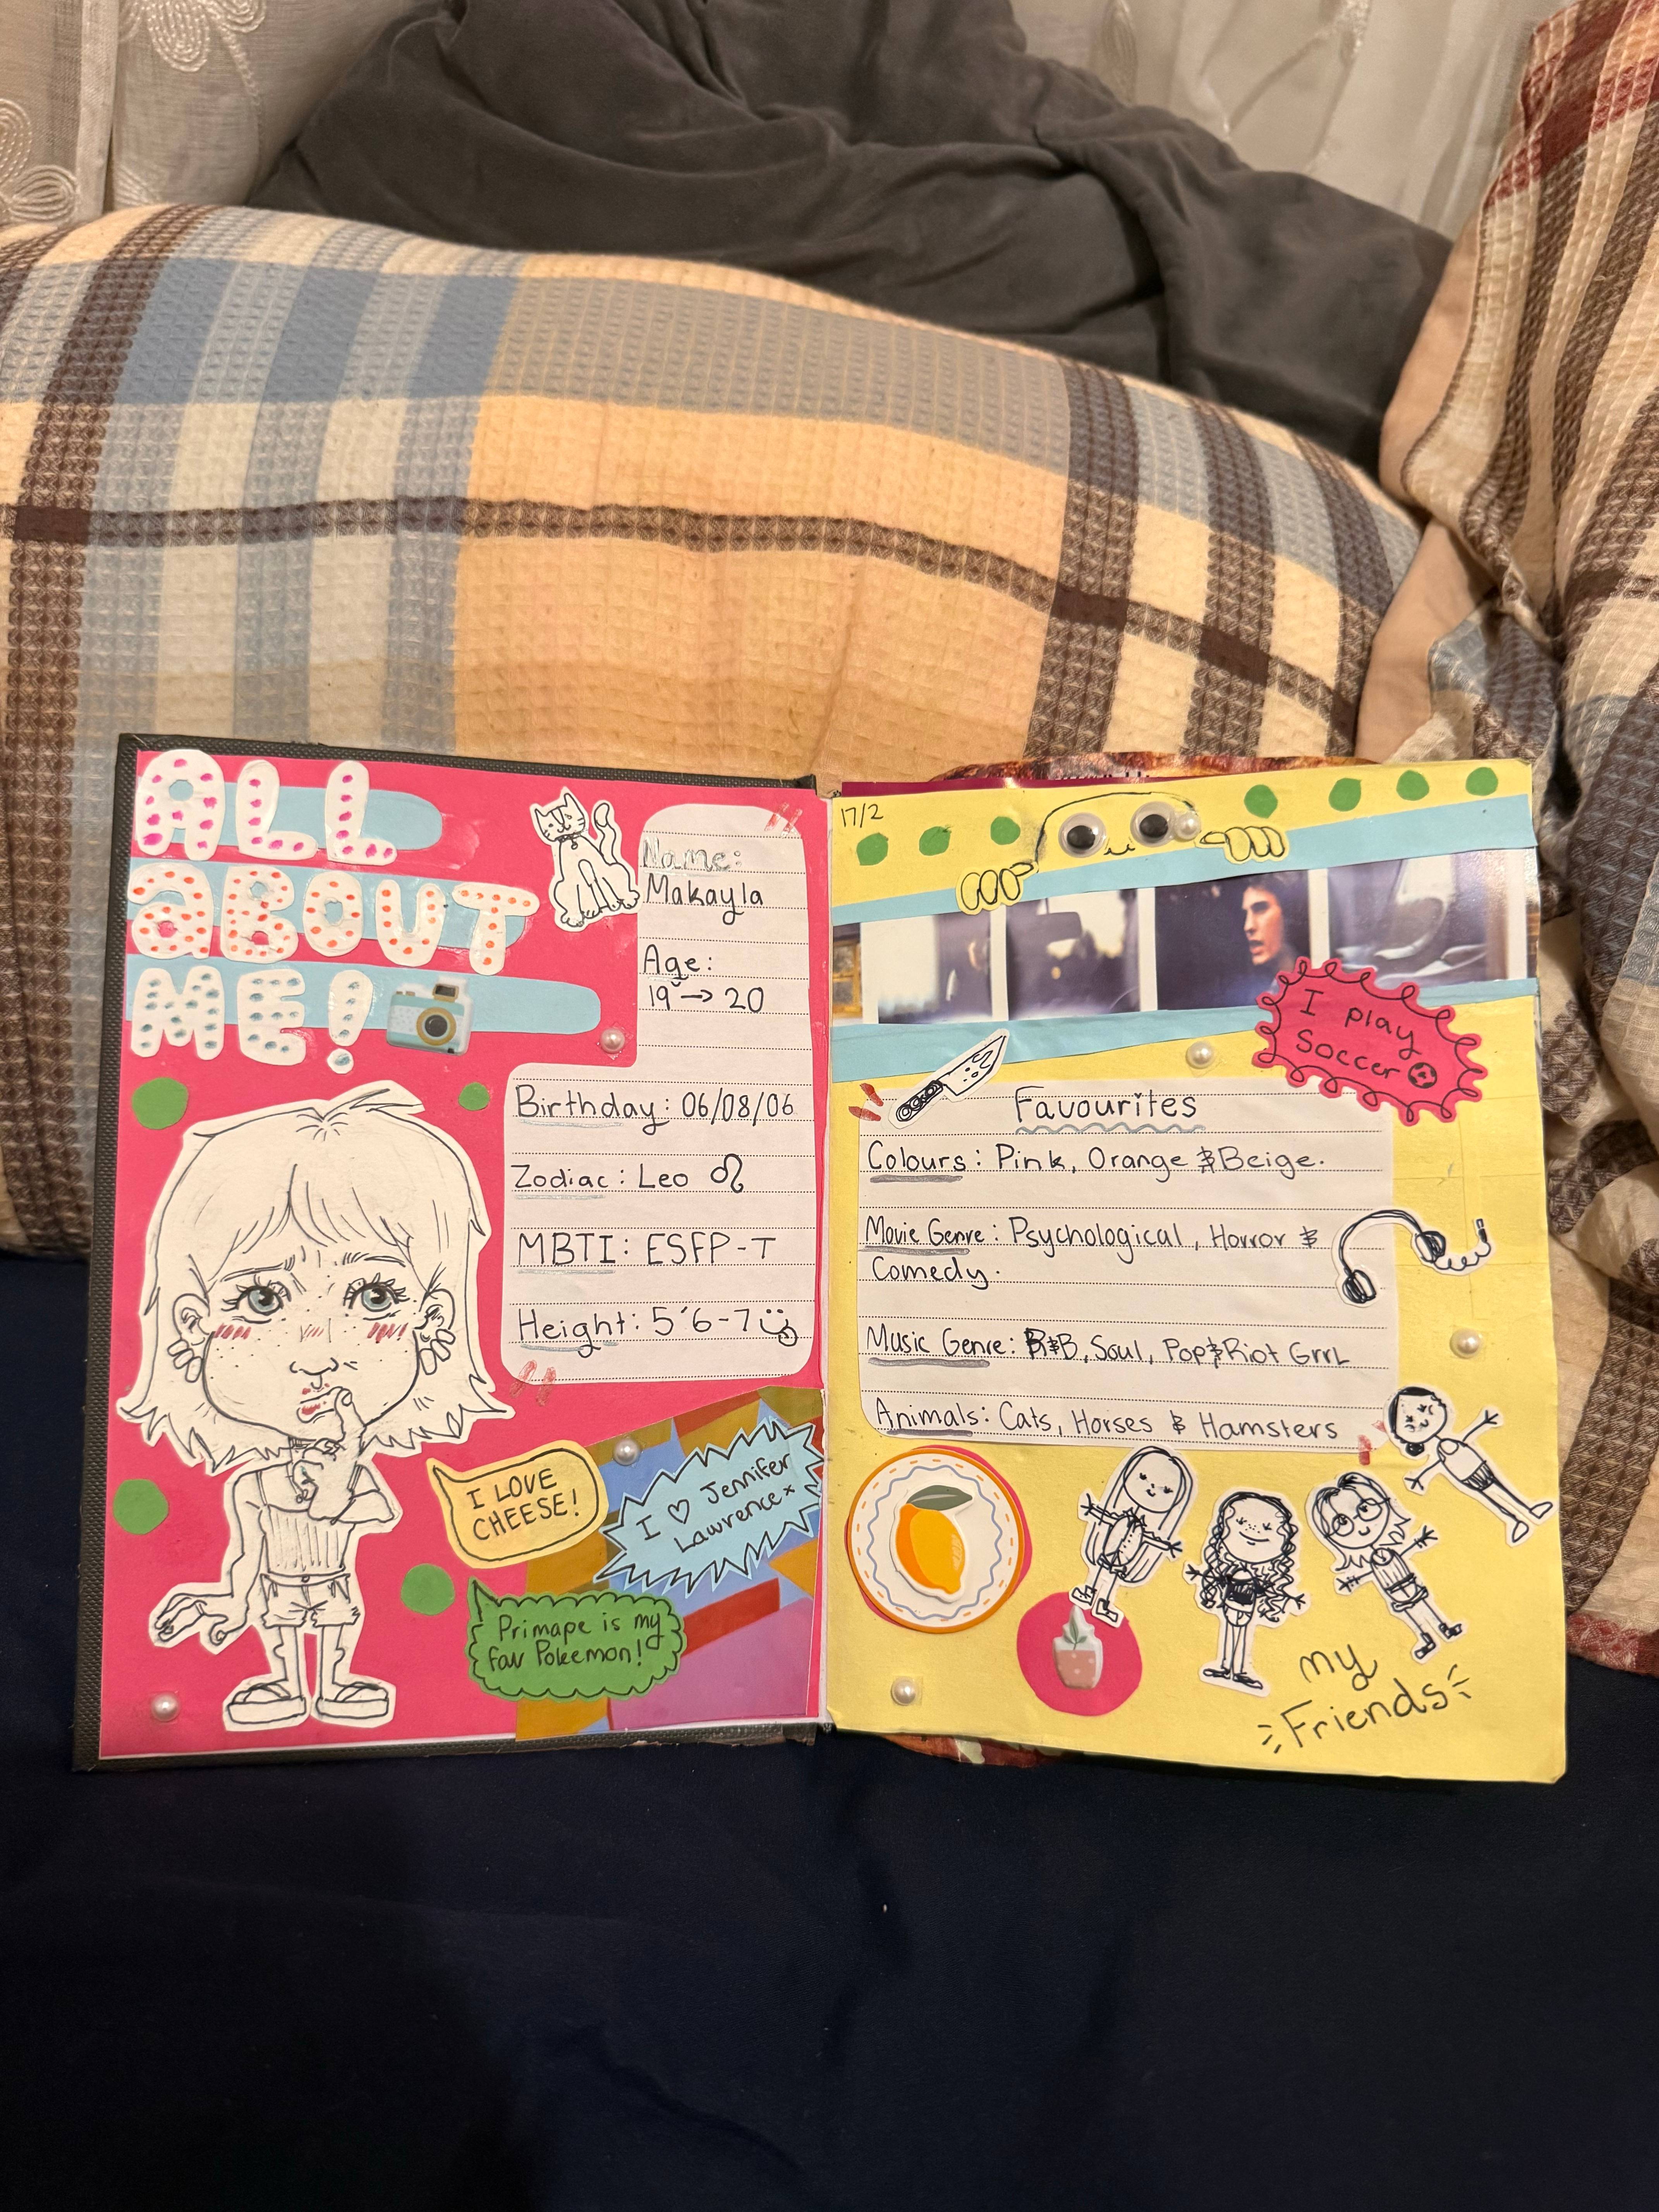 ALL
ABOUT
ME!
Name:
Makayla
Age:
19 → 20
Birthday: 06/08/06
Zodiac: Leo ♌
MBTI: ESFP-T
Height: 5'6-7
I LOVE
CHEESE!
I ♡ Jennifer
Lawrence x
Primape is my
fav Pokemon!
17/2
I play
Soccer
Favourites
Colours: Pink, Orange & Beige.
Movie Genre: Psychological, Horror &
Comedy.
Music Genre: R&B, Soul, Pop & Riot Grrl
Animals: Cats, Horses & Hamsters
My
Friends